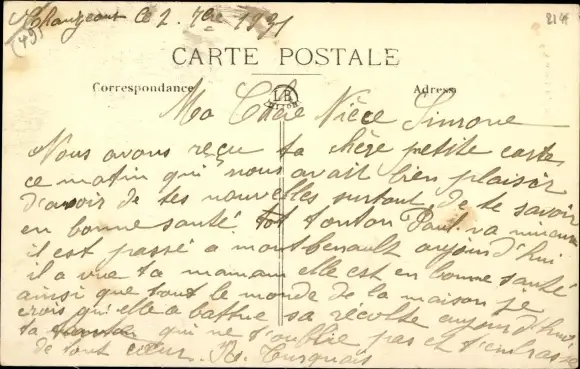 le 2. 7bre 1931
(49)
CARTE POSTALE
Correspondance
LB
DIJON
Adresse
Ma Chère Nièce Simone
Nous avons reçu ta chère petite carte
ce matin qui nous avait bien plaisir
d'avoir de tes nouvelles surtout de te savoir
en bonne santé. tonton Paul va
il est passé a montbenault aujourd'hui
il a vue ta maman elle est en bonne santé
ainsi que tout le monde de la maison je
crois qu'elle a battue sa récolte aujourd'hui
ta qui ne t'oublie pas et t'embrasse
de tout cœur.